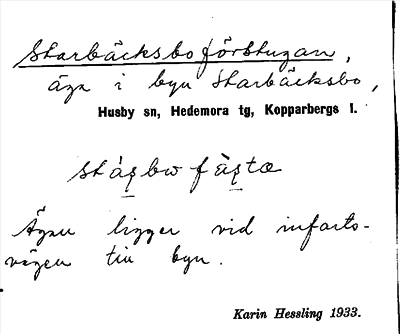 Starbäcksboförstugan,
äga i byn Starbäcksbo,
Husby sn, Hedemora tg, Kopparbergs l.
Ägan ligger vid infarts-
vägen till byn.
Karin Hessling 1933.